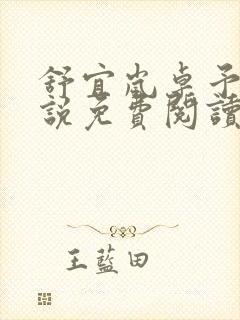 舒宜嵐卓予
說免費閱讀
王藍田